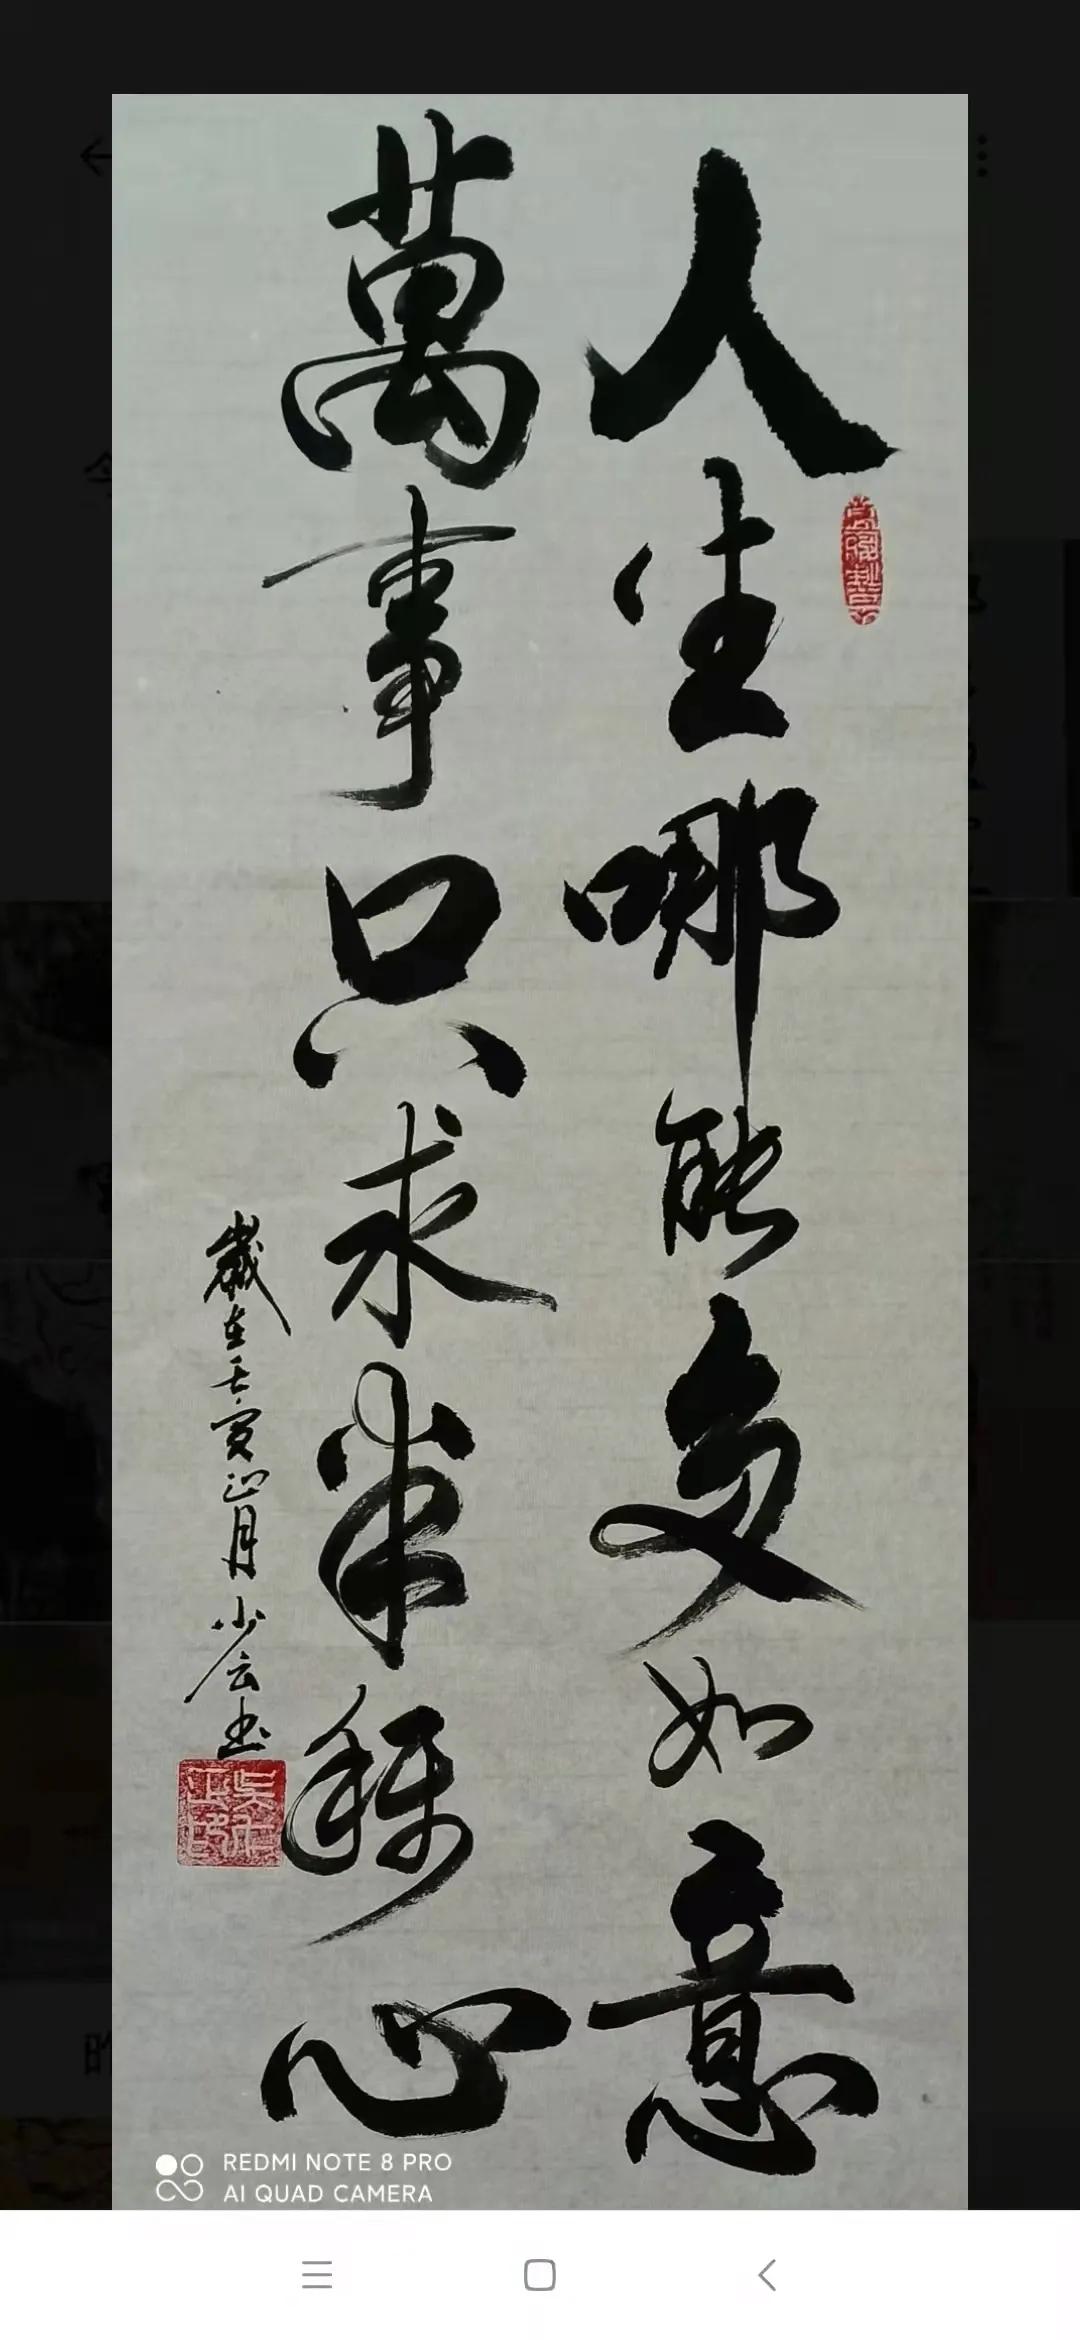 人生哪能多如意
萬事只求半稱心
歲在壬寅正月少云书
REDMI NOTE 8 PRO
AI QUAD CAMERA